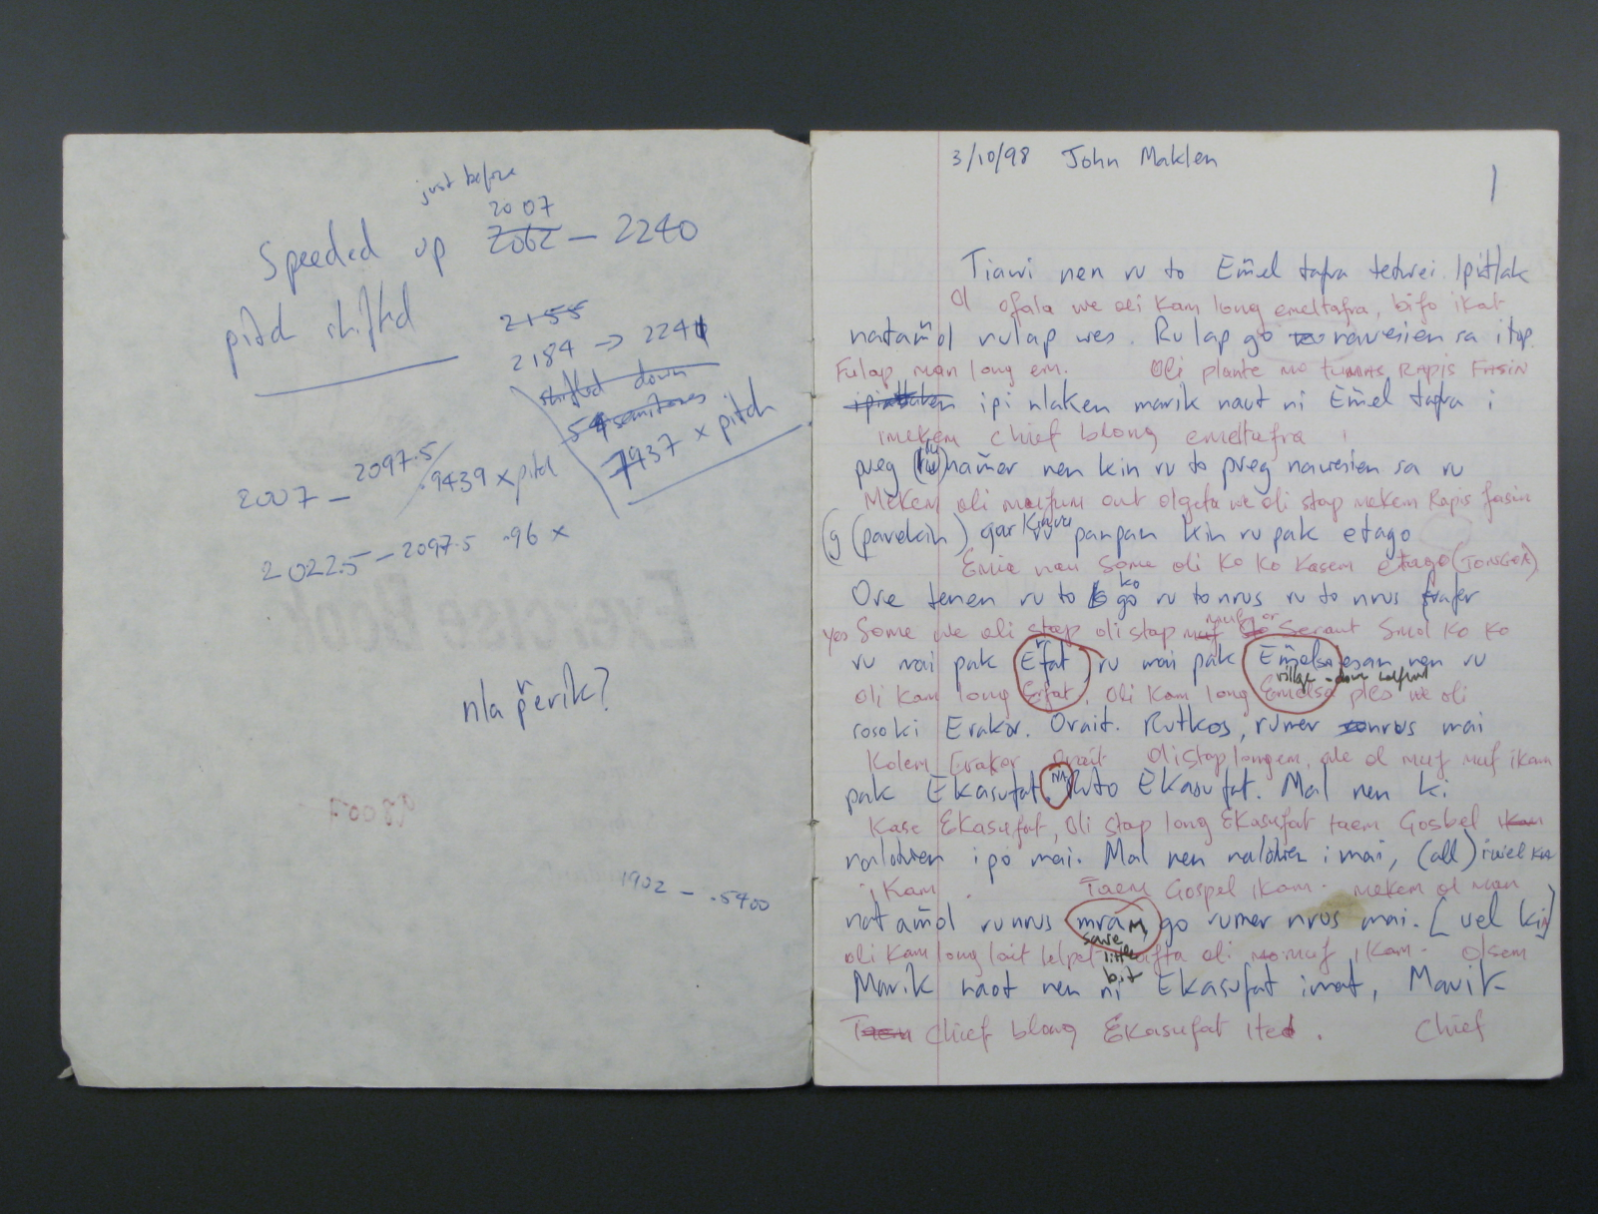 just before
2007
Speeded up 2062 — 2240
pitch shifted
2155
2184 → 2241
shifted down
54 semitones
7937 x pitch
2007 — 2097.5 .9439 x pitch
2022.5 — 2097.5 .96 x
Exercise Book
nla p̃erik?
98007
1902 — .5400
3/10/98 John Maklen
1
Tiawi nen ru to Em̃el tafra tedwei. Ipitlak
Ol ofala we oli kam long emeltafra, bifo ikat
natam̃ol rulap wes. Ru lap go nawesien sa itop.
Fulap man long em. Oli plante mo tumas Rapis Fasin
ipi nlaken marik naut ni Em̃el tafra i
imekem chief blong emeltafra i
preg nam̃er nen kin ru to preg nawesien sa ru
Mekem oli out olgeta we oli stap mekem Rapis fasin
g (pavekin) gar panpan kin ru pak etago
nau Some oli Ko Ko Kasem etago (TONGOA)
Ore tenen ru to ko go ru to nrus ru to nrus frafer
yes Some we oli stap oli stap muf Smol Ko Ko
ru mai pak Efat, ru mai pak Em̃elsa esan nen ru
village
oli Kam long Efat, oli Kam long Emelsa ples we oli
sosoki Erakor. Orait. Rutkos, rumer nrus mai
Kolem Erakor Orait Oli stap longem, ale ol muf muf ikam
pak Ekasufat. Ruto Ekasufat. Mal nen ki
Kase Ekasufat, Oli stap long Ekasufat taem Gosbel ikam
nalotwien ipo mai. Mal nen nalotwien i mai, (all) iwel kin
iKam. Taem Gospel iKam. mekem ol man
natam̃ol runrus mram, go rumer nrus mai. [uel kin]
save little bit
oli Kam long lait lelpet afta oli muf iKam. olsem
Marik naot nen ni Ekasufat imat, Marik
Taem Chief blong Ekasufat ited. Chief